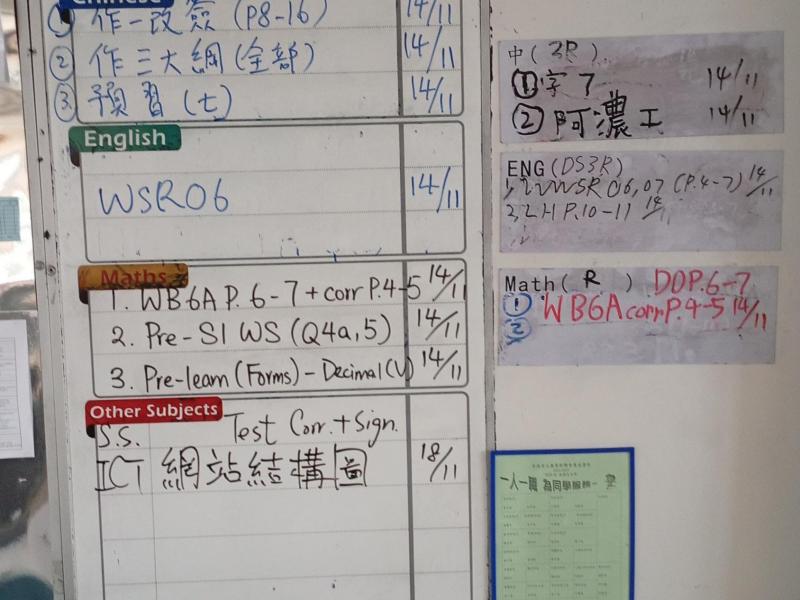 Chinese
① 作一改簽 (P8-16) 14/11
② 作三大網 (全部) 14/11
③ 預習 (七) 14/11
English
WSR06 14/11
Maths
1. WB6A P. 6-7 + corr P.4-5 14/11
2. Pre-S1 WS (Q4a,5) 14/11
3. Pre-learn (Forms) - Decimal(V) 14/11
Other Subjects
S.S. Test Corr. + Sign.
ICT 網站結構圖 18/11
中( 3R )
① 字 7 14/11
② 阿濃工 14/11
ENG (DS3R)
WSR 06,07 (P.4-7) 14/11
2, LH P.10-11 14
Math( R ) DO P.6-7
① WB6A corr P.4-5 14/11
②
一人一職 為同學服務